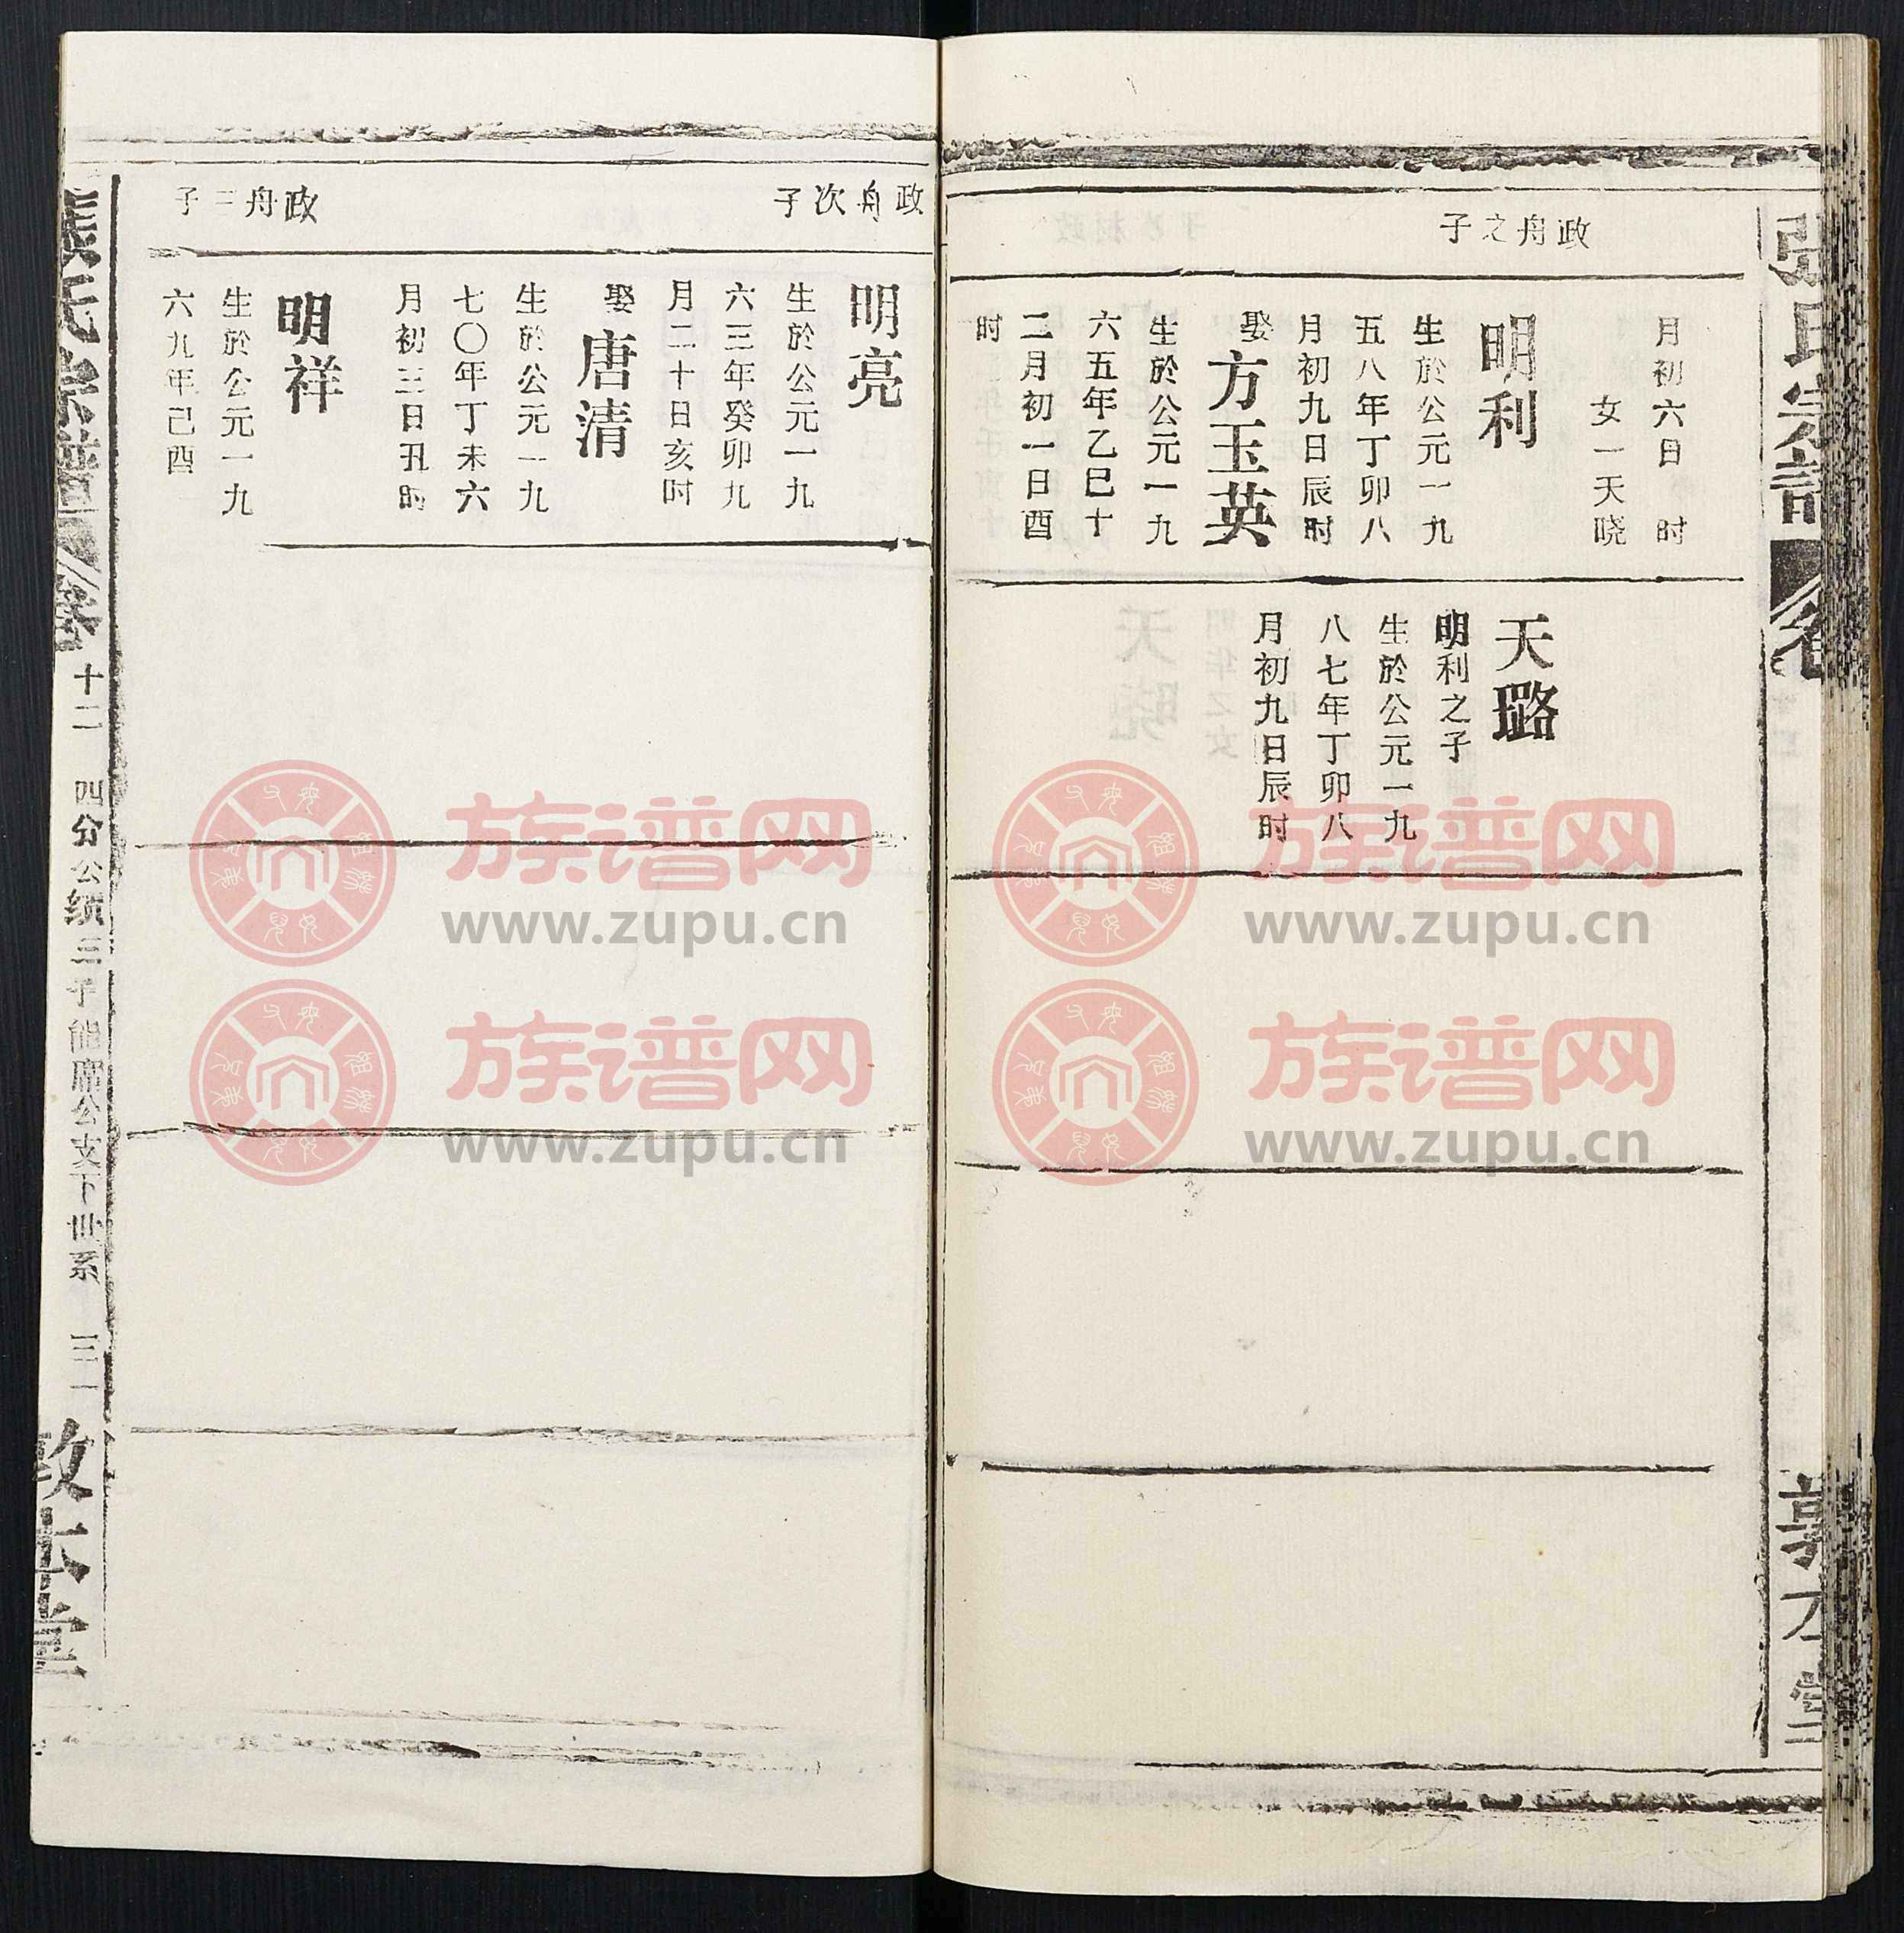 张氏宗谱
卷
政舟之子
月初六日 时
女一天晓
明利
生於公元一九
五八年丁卯八
月初九日辰时
娶方玉英
生於公元一九
六五年乙巳十
二月初一日酉
时
天璐
明利之子
生於公元一九
八七年丁卯八
月初九日辰时
政舟次子
明亮
生於公元一九
六三年癸卯九
月二十日亥时
娶唐清
生於公元一九
七〇年丁未六
月初三日丑时
政舟三子
明祥
生於公元一九
六九年己酉
張氏宗譜
卷
十二 四分公绩三子能廣公支下世系 三十一
敦本堂
族谱网
www.zupu.cn
族谱网
www.zupu.cn
族谱网
www.zupu.cn
族谱网
www.zupu.cn